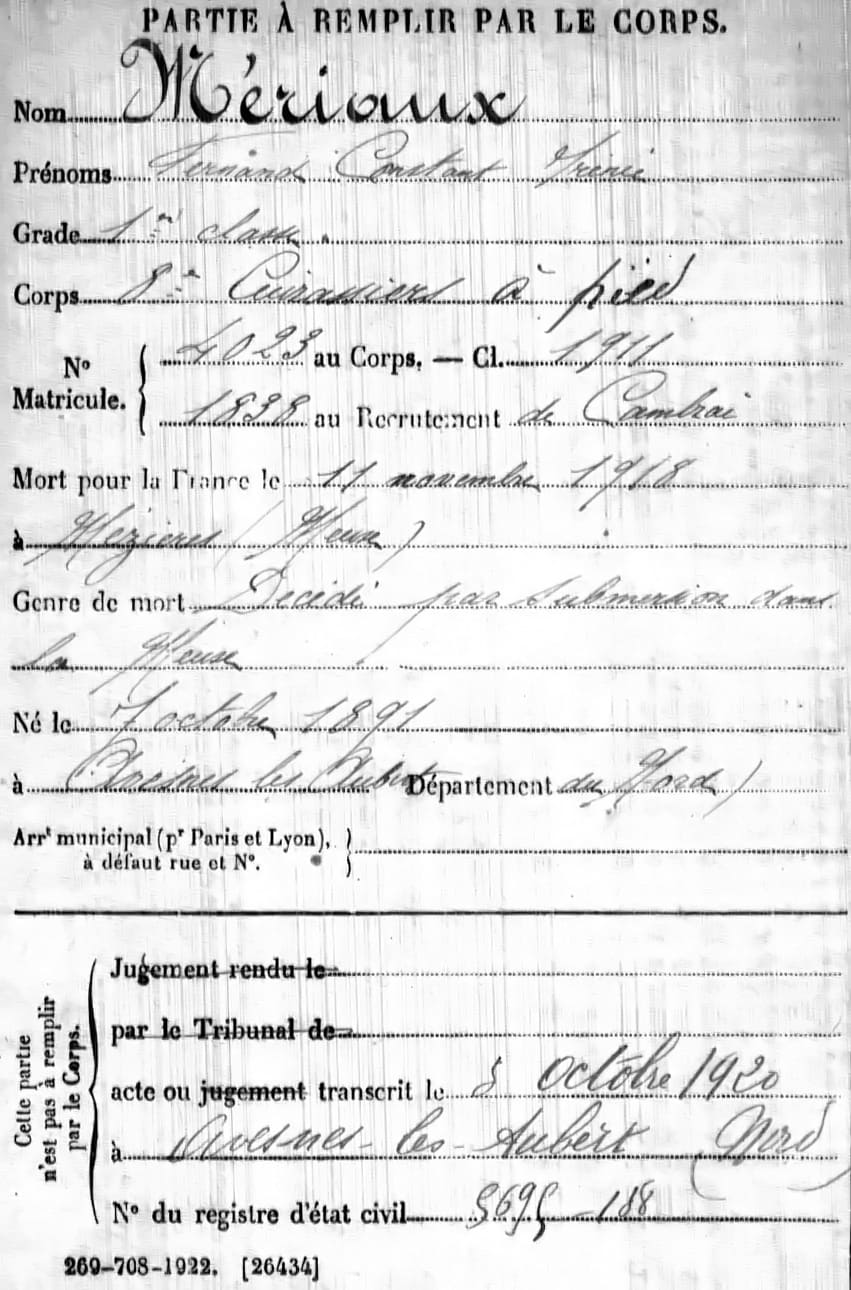 PARTIE À REMPLIR PAR LE CORPS.
Nom Mériaux
Prénoms Fernand Constant Irénée
Grade 1re classe.
Corps 8e Cuirassiers à pied
No Matricule. 4023 au Corps. — Cl. 1911
1838 au Recrutement de Cambrai
Mort pour la France le 11 novembre 1918
à Mézières (Meuse)
Genre de mort Décédé par submersion dans
la Meuse
Né le 7 octobre 1891
à Avesnes les Aubert Département du Nord)
Arrt municipal (pr Paris et Lyon),
à défaut rue et No.
Cette partie n'est pas à remplir par le Corps.
Jugement rendu le
par le Tribunal de
acte ou jugement transcrit le 5 octobre 1920
à Avesnes-les-Aubert (Nord
No du registre d'état civil 5695-188
269-708-1922. [26434]